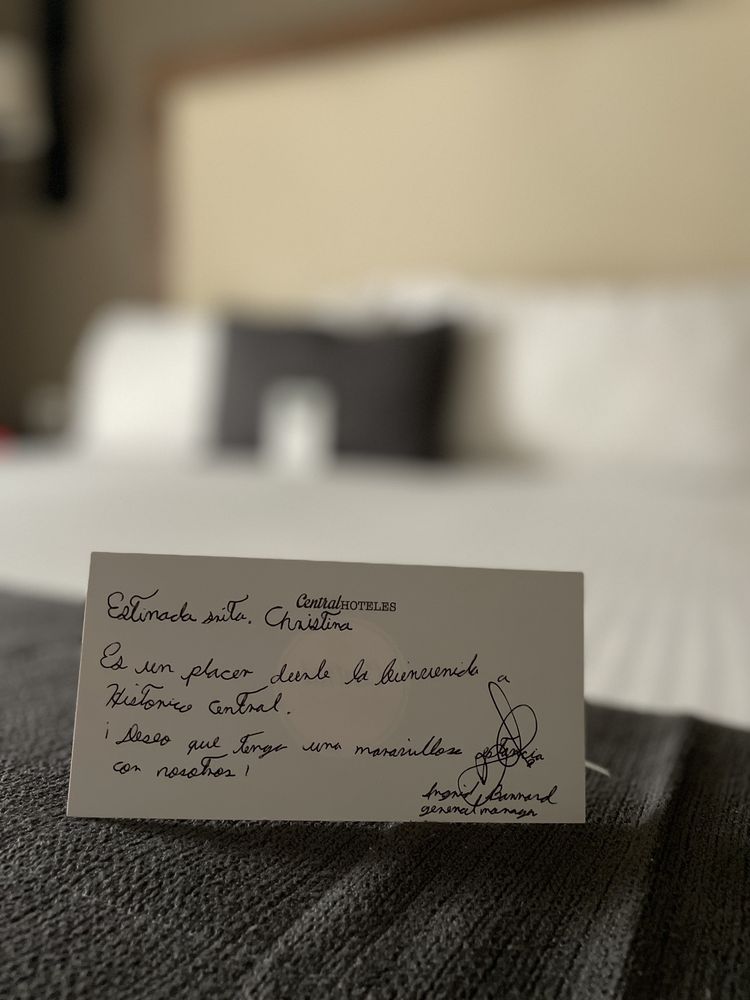 Central HOTELES
Estimada srita. Christina
Es un placer decirle la bienvenida a
Historico Central.
¡Deseo que tenga una maravillosa estancia
con nosotros!
Ingrid
general manager